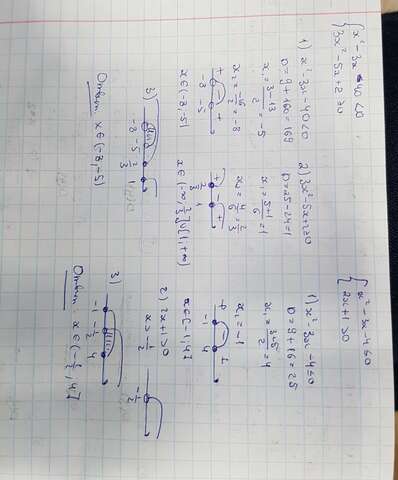 { x² - 3x - 40 < 0
3x² - 5x + 2 ≥ 0
1) x² - 3x - 40 < 0
D = 9 + 160 = 169
x₁ = (3 - 13)/2 = -5
x₂ = -16/2 = -8
+ - +
-8 -5
x ∈ (-8, -5)
2) 3x² - 5x + 2 ≥ 0
D = 25 - 24 = 1
x₁ = (5 + 1)/6 = 1
x₂ = 4/6 = 2/3
+ - +
2/3 1
x ∈ (-∞, 2/3] ∪ [1, +∞)
3)
-8 -5 2/3 1
Ответ: x ∈ (-8, -5)
{ x² - 3x - 4 ≤ 0
2x + 1 > 0
1) x² - 3x - 4 ≤ 0
D = 9 + 16 = 25
x₁ = (3+5)/2 = 4
x₂ = -1
+ - +
-1 4
x ∈ [-1, 4]
2) 2x + 1 > 0
x > -1/2
-1/2
3)
-1 -1/2 4
Ответ: x ∈ (-1/2, 4]